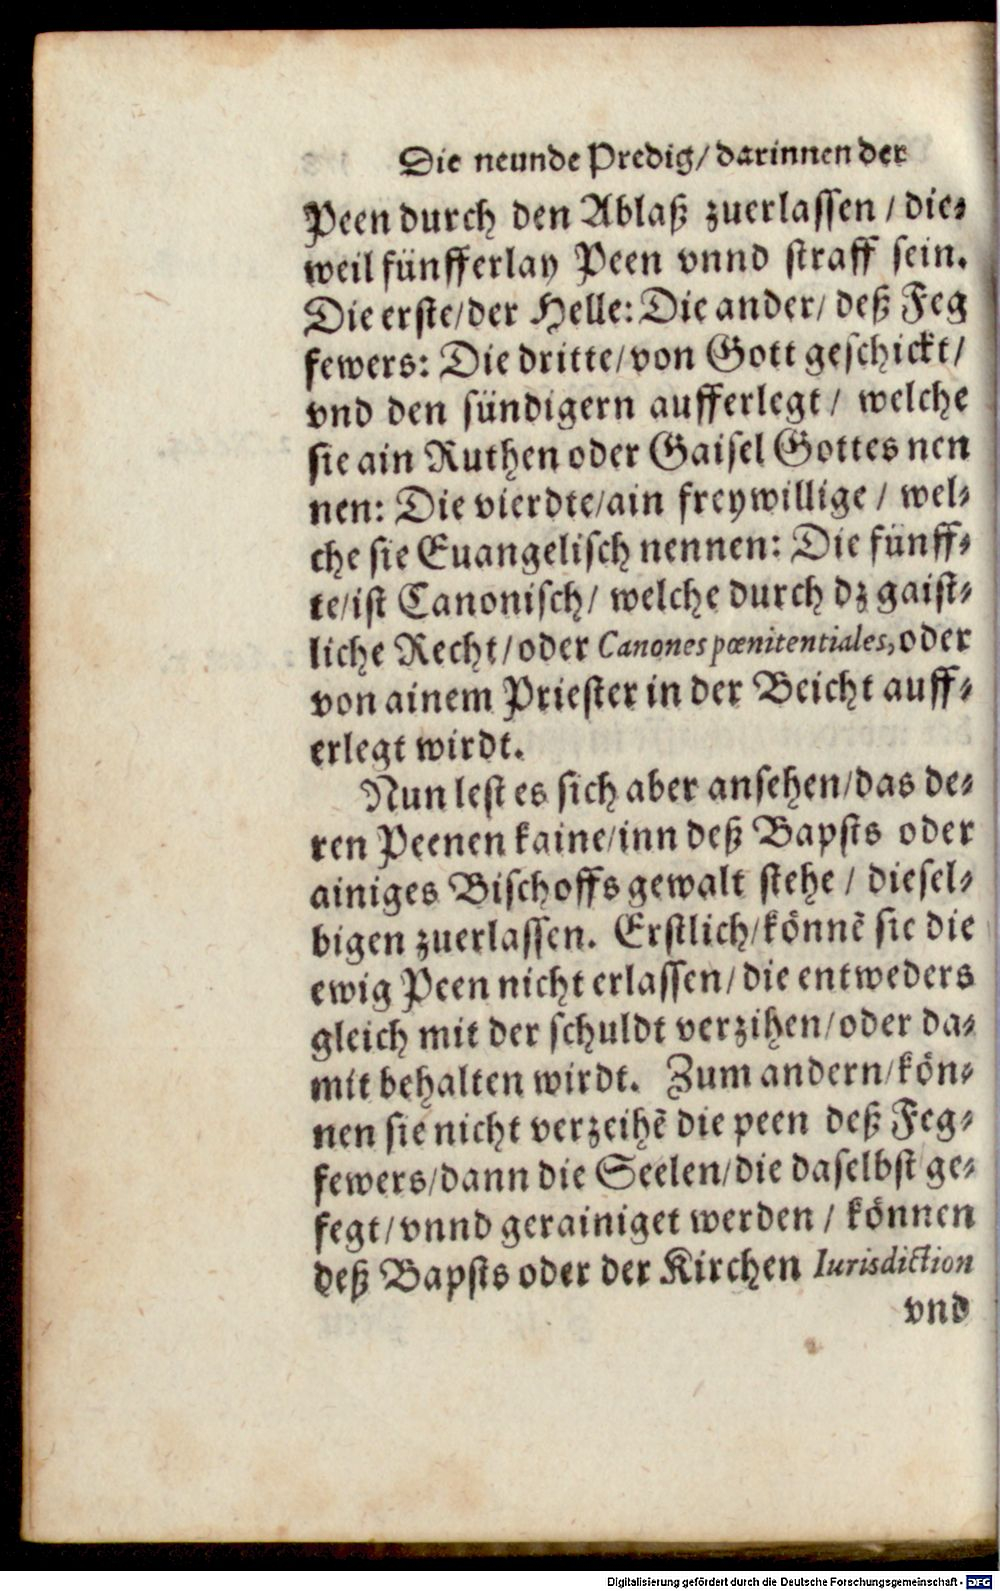 Die neunde Predig/ darinnen der
Peen durch den Ablaß zuerlassen / die-
weil fünfferlay Peen vnnd straff sein.
Die erste/der Helle: Die ander/ deß Feg
fewers: Die dritte/von Gott geschickt/
vnd den sündigern aufferlegt/ welche
sie ain Ruthen oder Gaisel Gottes nen
nen: Die vierdte/ain freywillige / wel-
che sie Euangelisch nennen: Die fünff-
te/ist Canonisch/ welche durch dz gaist-
liche Recht/oder Canones pœnitentiales, oder
von ainem Priester in der Beicht auff-
erlegt wirdt.
Nun lest es sich aber ansehen/das de-
ren Peenen kaine/inn deß Bapsts oder
ainiges Bischoffs gewalt stehe / diesel-
bigen zuerlassen. Erstlich/könnē sie die
ewig Peen nicht erlassen/die entweders
gleich mit der schuldt verzihen/oder da-
mit behalten wirdt. Zum andern/kön-
nen sie nicht verzeihē die peen deß Feg-
fewers/dann die Seelen/die daselbst ge-
fegt/vnnd gerainiget werden / können
deß Bapsts oder der Kirchen Iurisdiction
vnd
Digitalisierung gefördert durch die Deutsche Forschungsgemeinschaft - DFG